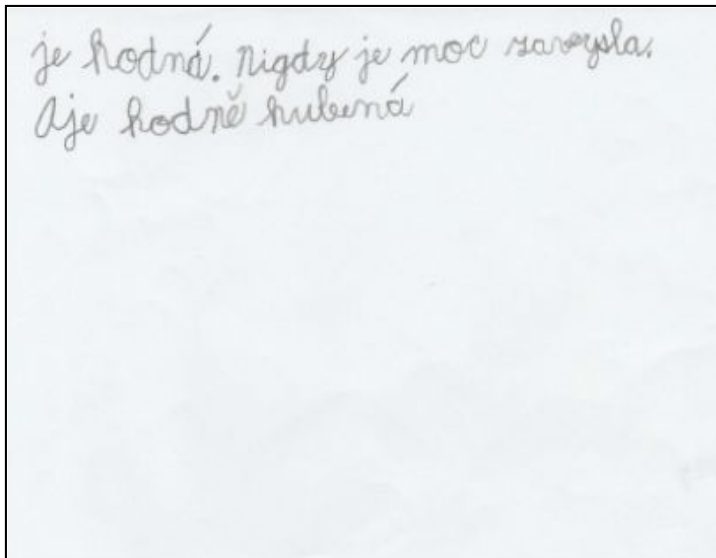 je hodná. nigdy je moc
Aje hodně hubená